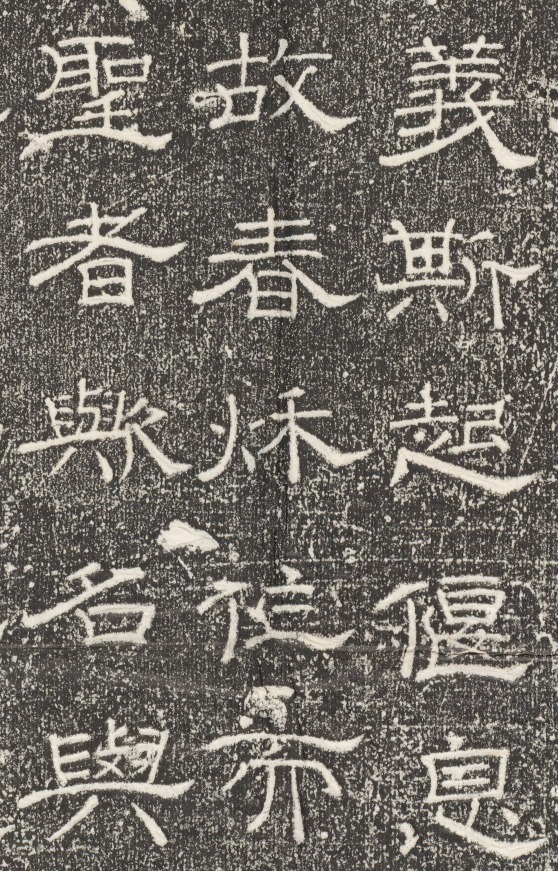 義斯起偃息
故春秌位
聖者歟名與